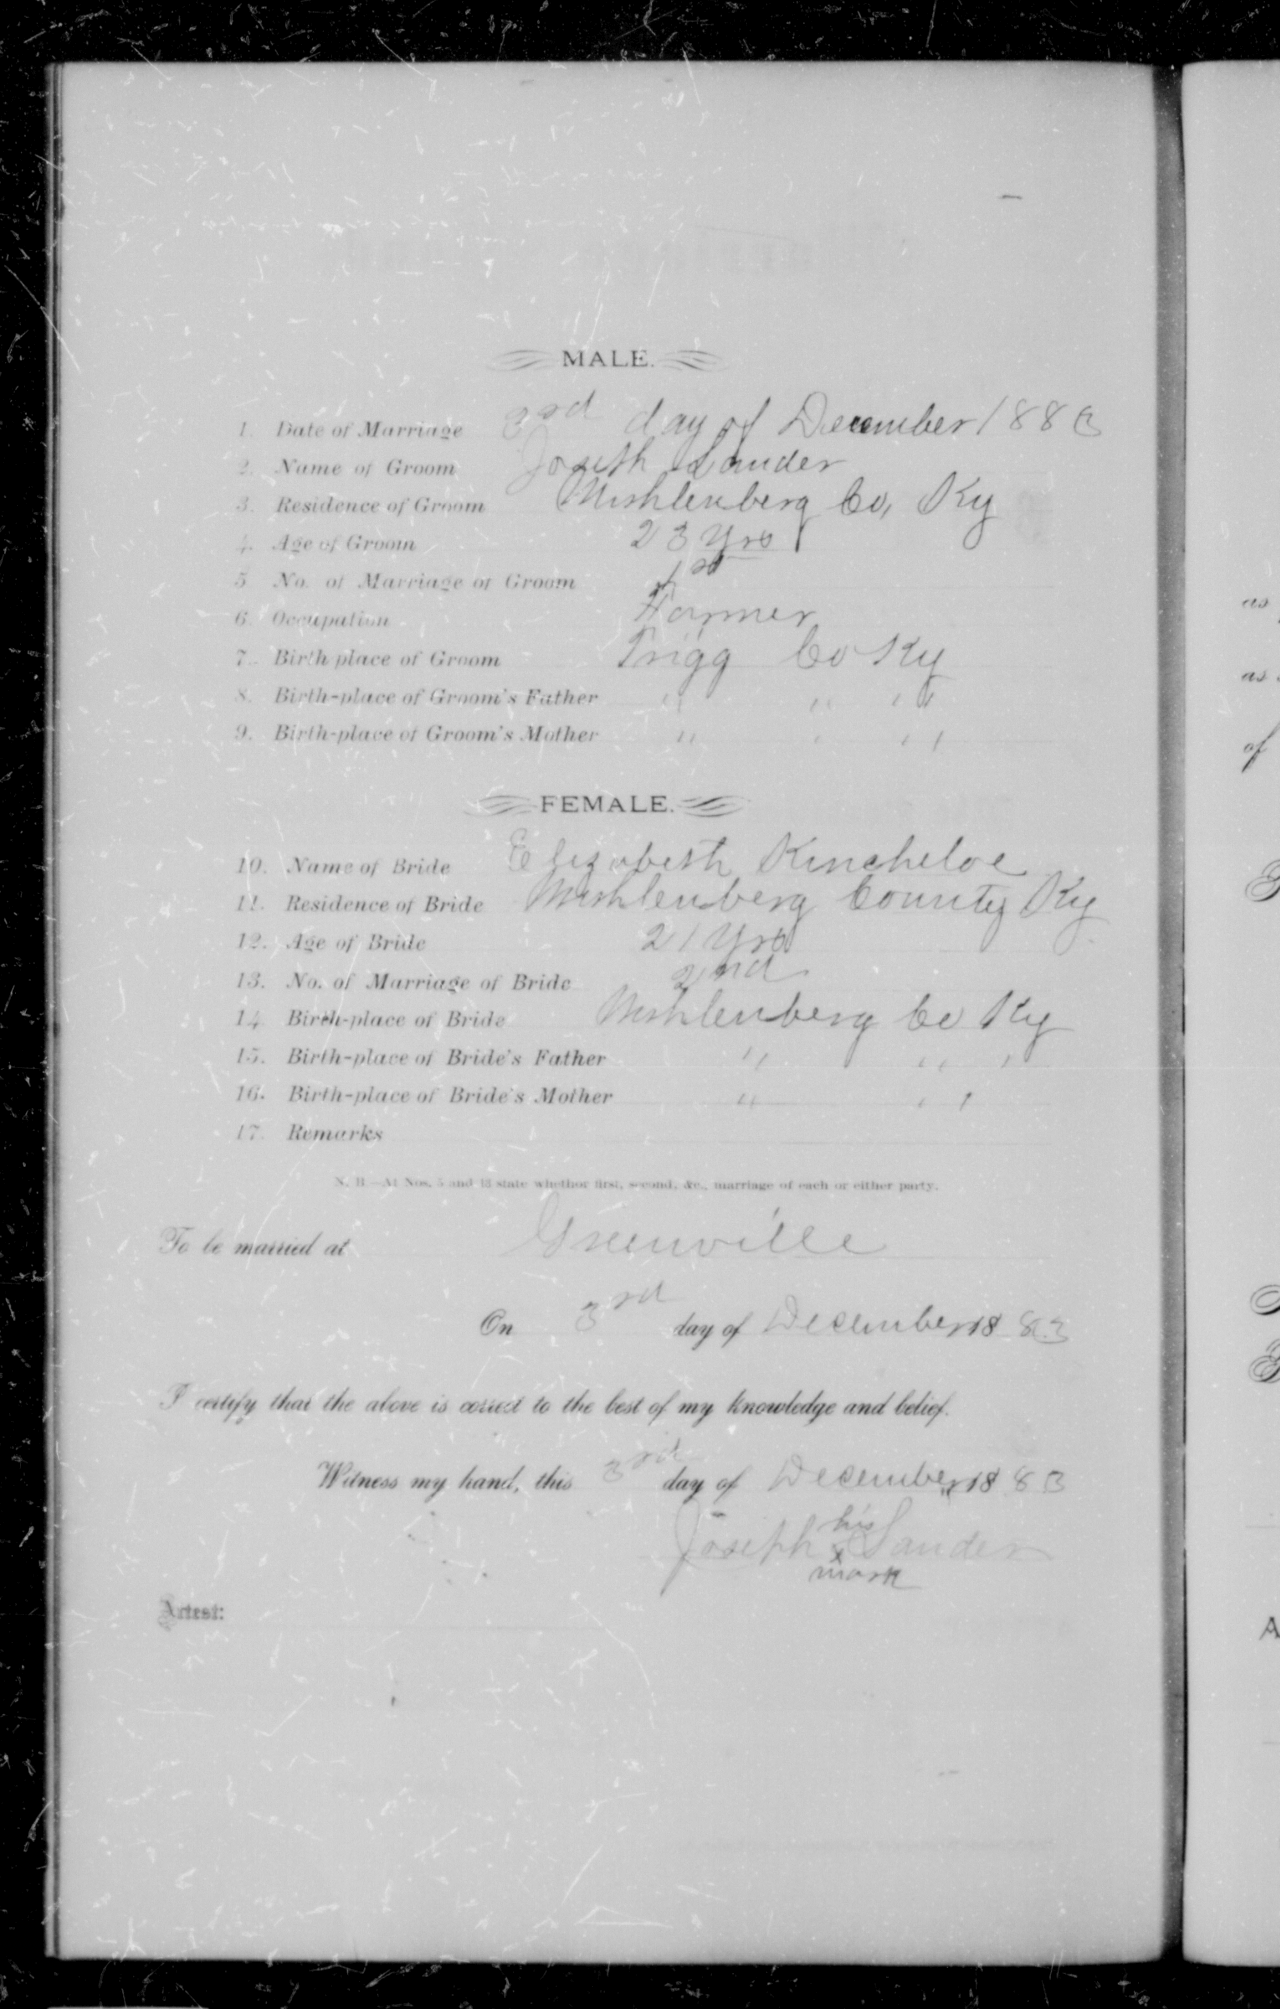 MALE.
1. Date of Marriage 3rd day of December 1883
2. Name of Groom Joseph Sander
3. Residence of Groom Muhlenberg Co, Ky
4. Age of Groom 23 Yrs
5. No. of Marriage of Groom 1st
6. Occupation Farmer
7. Birth place of Groom Trigg Co Ky
8. Birth-place of Groom's Father " " "
9. Birth-place of Groom's Mother " " "
FEMALE.
10. Name of Bride Elizabeth Kincheloe
11. Residence of Bride Muhlenberg County Ky
12. Age of Bride 21 Yrs
13. No. of Marriage of Bride 2nd
14. Birth-place of Bride Muhlenberg Co Ky
15. Birth-place of Bride's Father " " "
16. Birth-place of Bride's Mother " "
17. Remarks
N. B.—At Nos. 5 and 13 state whether first, second, &c., marriage of each or either party.
To be married at Greenville
On 3rd day of December 1883
I certify that the above is correct to the best of my knowledge and belief.
Witness my hand, this 3rd day of December, 1883
his
Joseph x Sander
mark
Attest:
as
as
of
A